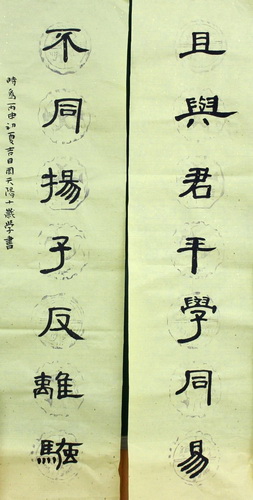 且與君平學同易
不同揚子反離騷
時為丙申初夏吉日周天陽十歲學書